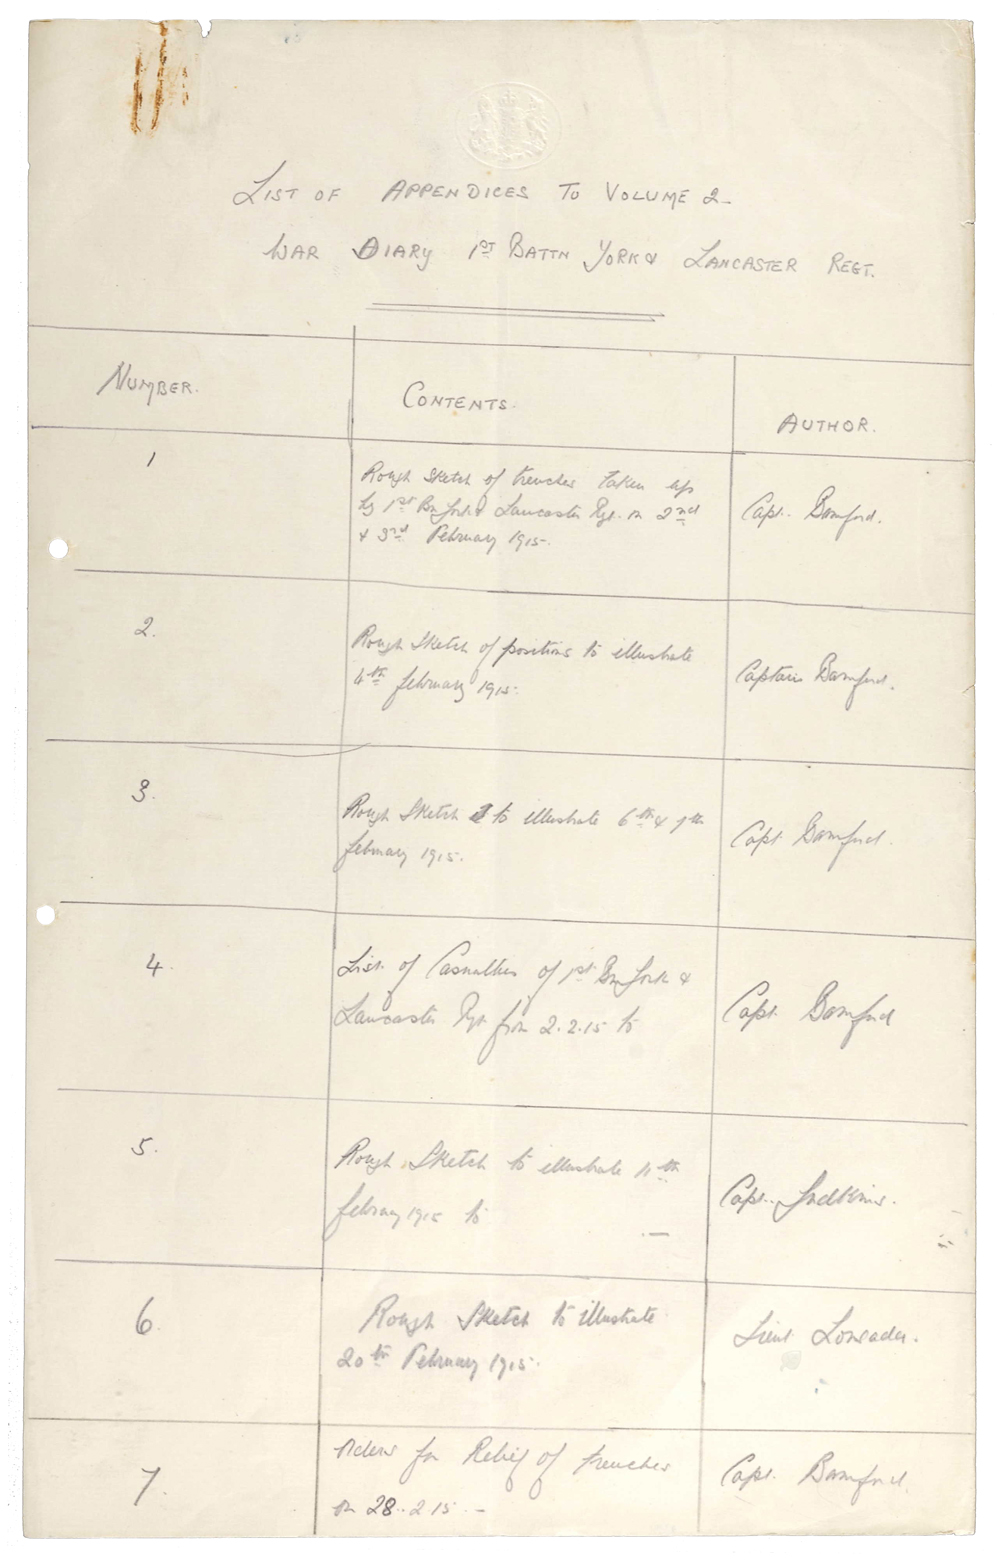 LIST OF APPENDICES TO VOLUME 2-
WAR DIARY 1ST BATTN YORK & LANCASTER REGT.
NUMBER. CONTENTS. AUTHOR.
1
Rough Sketch of trenches taken up
by 1st Bn York & Lancaster Rgt. on 2nd
& 3rd February 1915.
Capt. Bamford.
2.
Rough Sketch of positions to illustrate
4th February 1915.
Captain Bamford.
3.
Rough Sketch to illustrate 6th & 7th
February 1915.
Capt Bamford.
4.
List of Casualties of 1st Bn York &
Lancaster Rgt from 2.2.15 to
Capt. Bamford
5.
Rough Sketch to illustrate 11th
February 1915 to
Capt. Judkins.
6.
Rough Sketch to illustrate
20th February 1915.
Lieut
7.
Orders for Relief of trenches
on 28.2.15 -
Capt. Bamford.